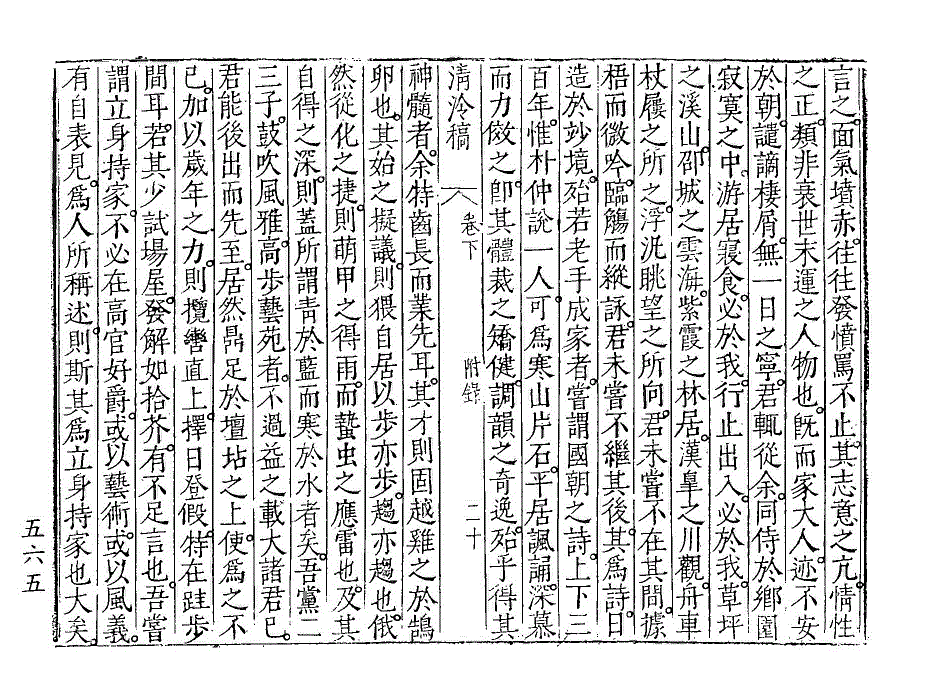 言之。面氣墳赤。往往發憤罵不止。其志意之亢。情性
之正。類非衰世末運之人物也。旣而家大人。迹不安
於朝。譴謫棲屑。無一日之寧。君輒從余。同侍於鄕園
寂寞之中。游居寢食。必於我。行止出入。必於我。草坪
之溪山。邵城之雲海。紫霞之林居。漢阜之川觀。舟車
杖屨之所之。浮泛眺望之所向。君未嘗不在其間。據
梧而微吟。臨觴而縱詠。君未嘗不繼其後。其爲詩。日
造於妙境。殆若老手成家者。嘗謂國朝之詩。上下三
百年。惟朴仲說一人。可爲寒山片石。平居諷誦。深慕
而力傚之。卽其體裁之矯健。調韻之奇逸。殆乎得其
淸冷稿 卷下 附錄 二十
神髓者。余特齒長而業先耳。其才則固越雞之於鵠
卵也。其始之擬議。則猥自居以步亦步。趨亦趨也。俄
然從化之捷。則萌甲之得雨。而蟄虫之應雷也。及其
自得之深。則蓋所謂靑於藍而寒於水者矣。吾黨二
三子。鼓吹風雅。高步藝苑者。不過益之載大諸君已。
君能後出而先至。居然鼎足於壇坫之上。使爲之不
已。加以歲年之力。則攬轡直上。擇日登假。特在跬步
間耳。若其少試場屋。發解如拾芥。有不足言也。吾嘗
謂立身持家。不必在高官好爵。或以藝術。或以風義。
有自表見。爲人所稱述。則斯其爲立身持家也大矣。
五六五